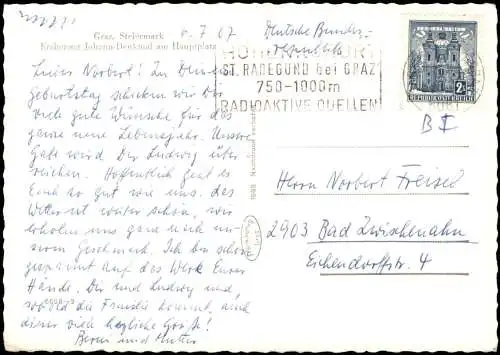 Graz, Steiermark
Erzherzog Johann-Denkmal am Hauptplatz
6.7.67
Deutsche Bundes-
republik
HÖHENLUFTKURORT
ST. RADEGUND bei GRAZ
750-1000m
RADIOAKTIVE QUELLEN
2S
REPUBLIK ÖSTERREICH
B I
Lieber Norbert! Zu Deinem
Geburtstag schicken wir Dir
viele gute Wünsche für das
ganze neue Lebensjahr. Unsere
Gabe wird Dir Ludwig über
reichen. Hoffentlich geht es
Euch so gut wie uns. das
Wetter ist weiter schön, wir
erholen uns ganz nach un-
serem Geschmack. Ich bin schon
gespannt auf das Werk Eurer
Hände. Dir und Ludwig und,
sobald die Familie kommt, auch
dieser viele herzliche Grüße!
und Mutter
Herrn Norbert Freisel
2903 Bad Zwischenahn
Eichendorffstr. 4